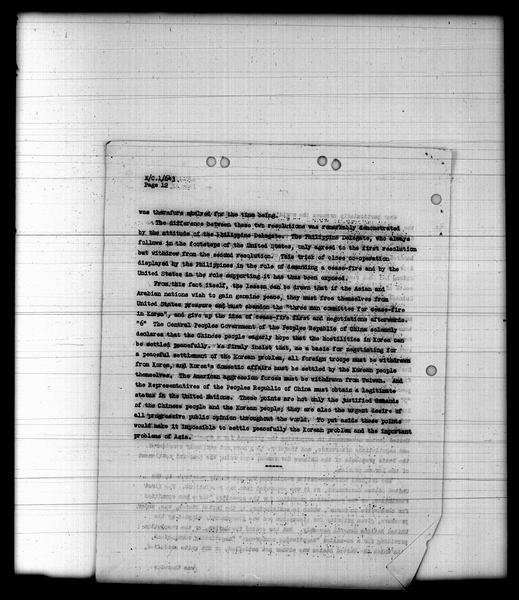 A/C.1/643
Page 12
was therefore shelved for the time being.
The difference between these two resolutions was remarkably demonstrated
by the attitude of the Philippine Delegate. The Philippine Delegate, who always
follows in the footsteps of the United States, only agreed to the first resolution
but withdrew from the second resolution. This trick of close co-operation
displayed by the Philippines in the role of demanding a cease-fire and by the
United States in the role supporting it has thus been exposed.
From this fact itself, the lesson can be drawn that if the Asian and
Arabian nations wish to gain genuine peace, they must free themselves from
United States pressure and must abandon the "three man committee for cease-fire
in Korea", and give up the idea of cease-fire first and negotiations afterwards.
"6" The Central Peoples Government of the Peoples Republic of China solemnly
declares that the Chinese people eagerly hope that the hostilities in Korea can
be settled peacefully. We firmly insist that, as a basis for negotiating for
a peaceful settlement of the Korean problem, all foreign troops must be withdrawn
from Korea, and Korea's domestic affairs must be settled by the Korean people
themselves. The American aggression forces must be withdrawn from Taiwan. And
the Representatives of the Peoples Republic of China must obtain a legitimate
status in the United Nations. These points are not only the justified demands
of the Chinese people and the Korean people; they are also the urgent desire of
all progressive public opinion throughout the world. To put aside these points
would make it impossible to settle peacefully the Korean problem and the important
problems of Asia.
-----